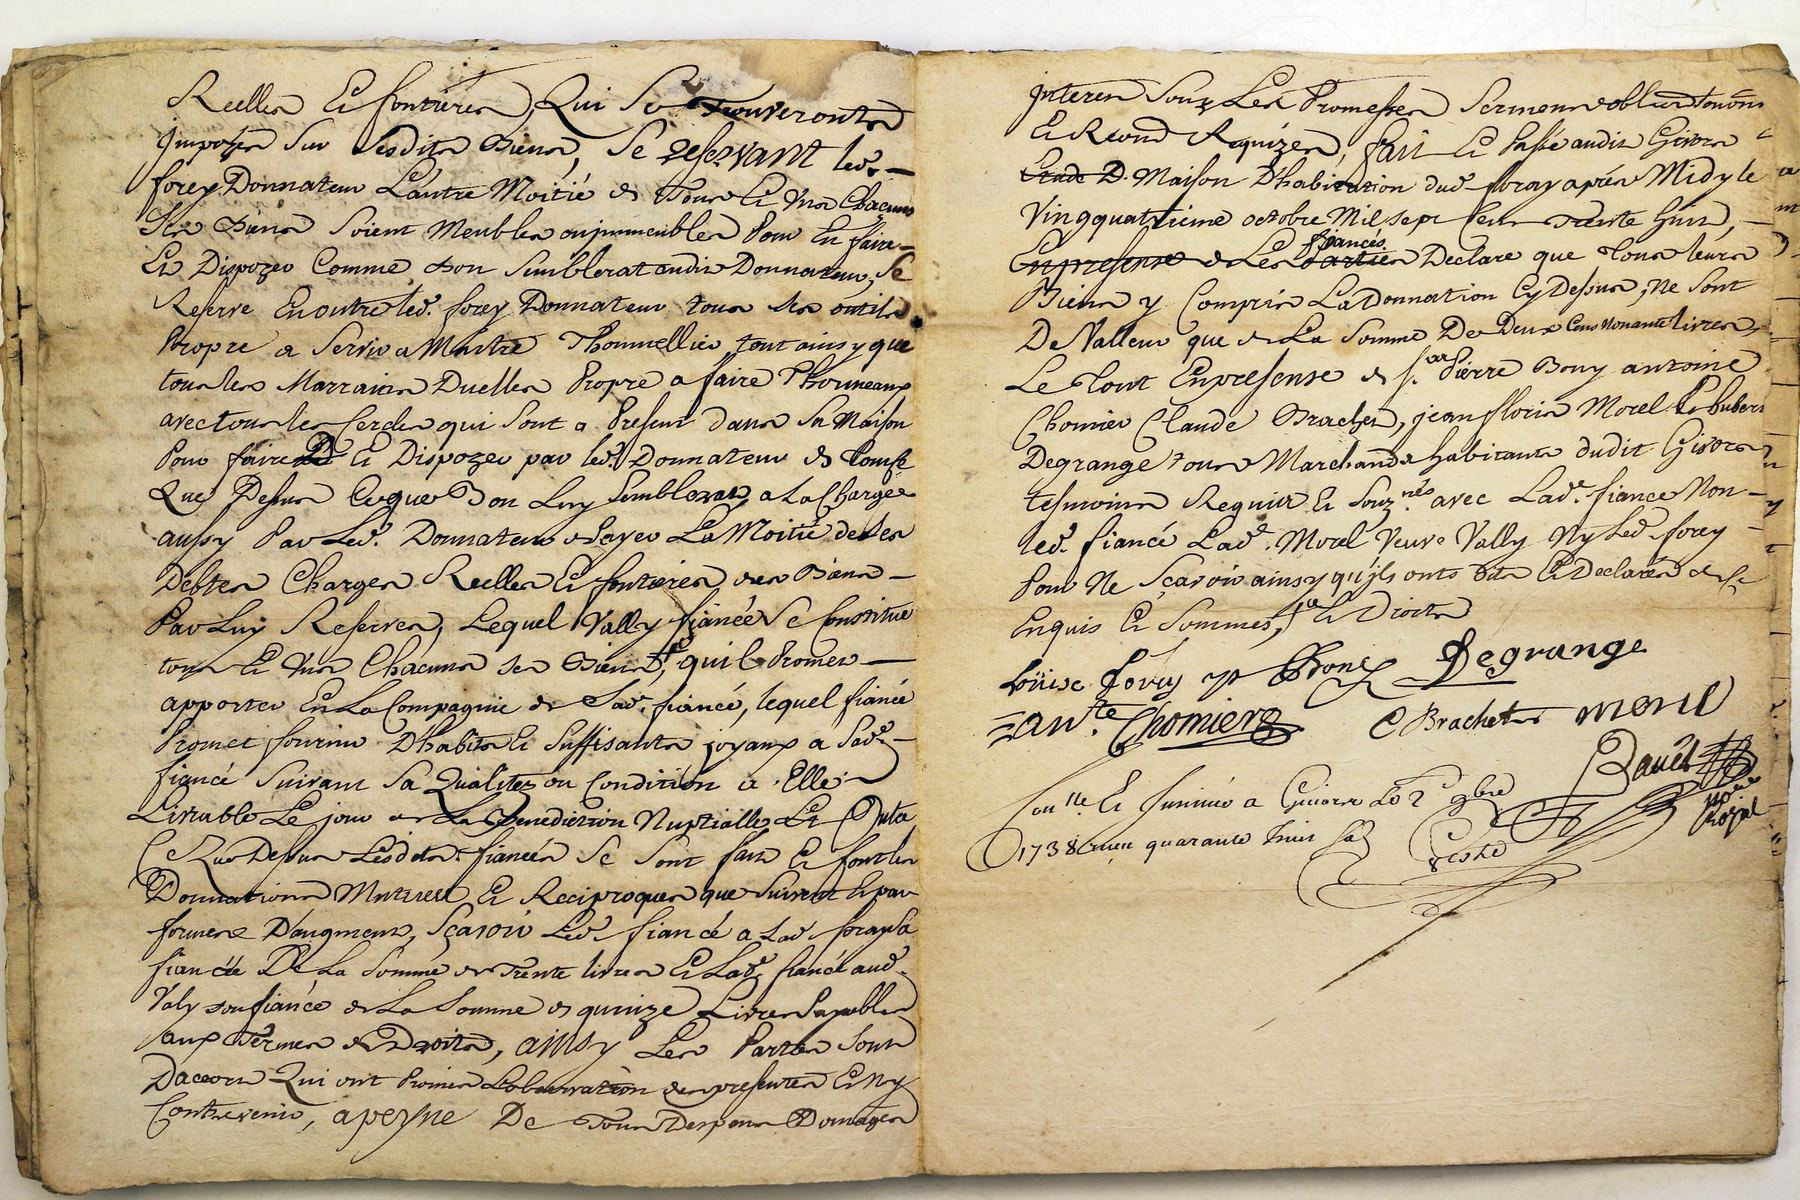 Reelles Et fontieres, Qui Se trouveronts
Imposes Sur Lesdits Biens, Se reservant led.
forey Donnateur L'autre Moitié de Tous Et Uns Chacuns
Ses Biens Soient Meubles ou jmmeubles Pour En faire
Et Dispozer Comme bon Semblerat audit Donnateur, Se
Reserve En outre led. forey Donnateur tous Ses outils
Propre a Servir a Maitre Thonnellier tout ainsy que
tous les Marraiens Duelles Propre a faire Thonneaux
avec tous les Cercles qui Sont a Present Dans Sa Maison
Pour faire Et Dispozer par led. Donnateur de
Que Dessus Ceque Bon Luy Semblerat, a La Charge
aussy Par Led. Donnateur de Payer La Moitié de Ses
Debtes Charges Reelles Et fontieres des Biens
Par Luy Reserves, Lequel Vally fiancé Se Constitue
tous Et Uns Chacuns ses Biens, qu'il Promet
apporter En La Compagnie de Lad. fiancé, lequel fiancé
Promet fournir D'habits Et Suffisants joyaux a Sad.
fiancé Suivant Sa Qualitez ou Condition a Elle
Livrable Le jour de La Benediction Nuptialle Et Outre
Ce Que Dessus Lesdits fiancés Se Sont fait Et font les
Donnations Mutuel Et Reciproques que Suivent Et par
formes D'augment, Sçavoir Led. fiancé a Lad. foray Sa
fiancée De La Somme de Trente livres Et Lad. fiancé aud.
Valy son fiancé de La Somme de quinze Livres Payables
aux Termes de Droits, ainsy Les Parties Sont
Daccors Qui ont Promis L'observation des presentes Et Ny
Contrevenir, a peyne De Tous Despens Domages
Interes Sous Les Promesses Sermens
Et Renond Requizes, fait Et Passé audit Givors
Etude D. Maison D'habitation dud. foray aprés Midy le
Vingquatrieme octobre Mil sept Cens trente huit,
En presense de Les Parties fiancés Declare que Tous leurs
Biens y Compris La Donnation Cy Dessus, Ne Sont
De Valleur que de La Somme De Deux Cens Nonante livres,
Le Tout En presense de Sr. Pierre Bony antoine
Chomier Claude Brachet, jean floris Morel Et hubert
Degrange tous Marchands habitants dudit Givors
tesmoins Requis Et Souz.nés avec Lad. fiance Non
led. fiancé Lad. Morel Veuve Vally Ny Led. forey
Pour Ne Sçavoir ainsy qu'jls onts dits Et Declarés de Ce
Enquis Et Sommes, Et Droits
Loüise Forey Degrange
ante. Chomier C Brachet morel
Royal
Con.lle Et Jnsinué a Givors Le 2e 9bre
1738 Receu quarante huit